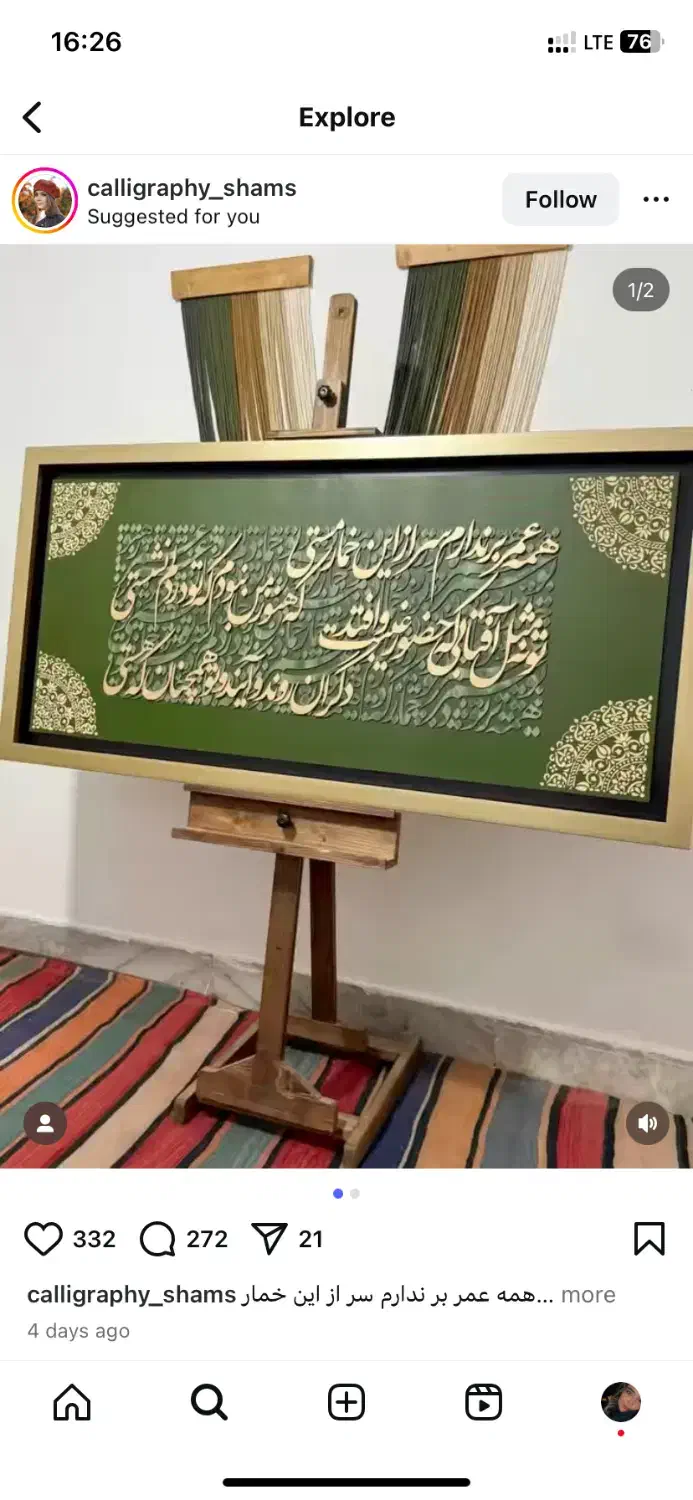 16:26
LTE 76
Explore
calligraphy_shams
Suggested for you
Follow
1/2
همه عمر برندارم سر از این خمار مستی
که هنوز من نبودم که تو در دلم نشستی
تو نه مثل آفتابی که حضور و غیبت افتد
دگران روند و آیند و تو همچنان که هستی
332
272
21
calligraphy_shams همه عمر بر ندارم سر از این خمار... more
4 days ago